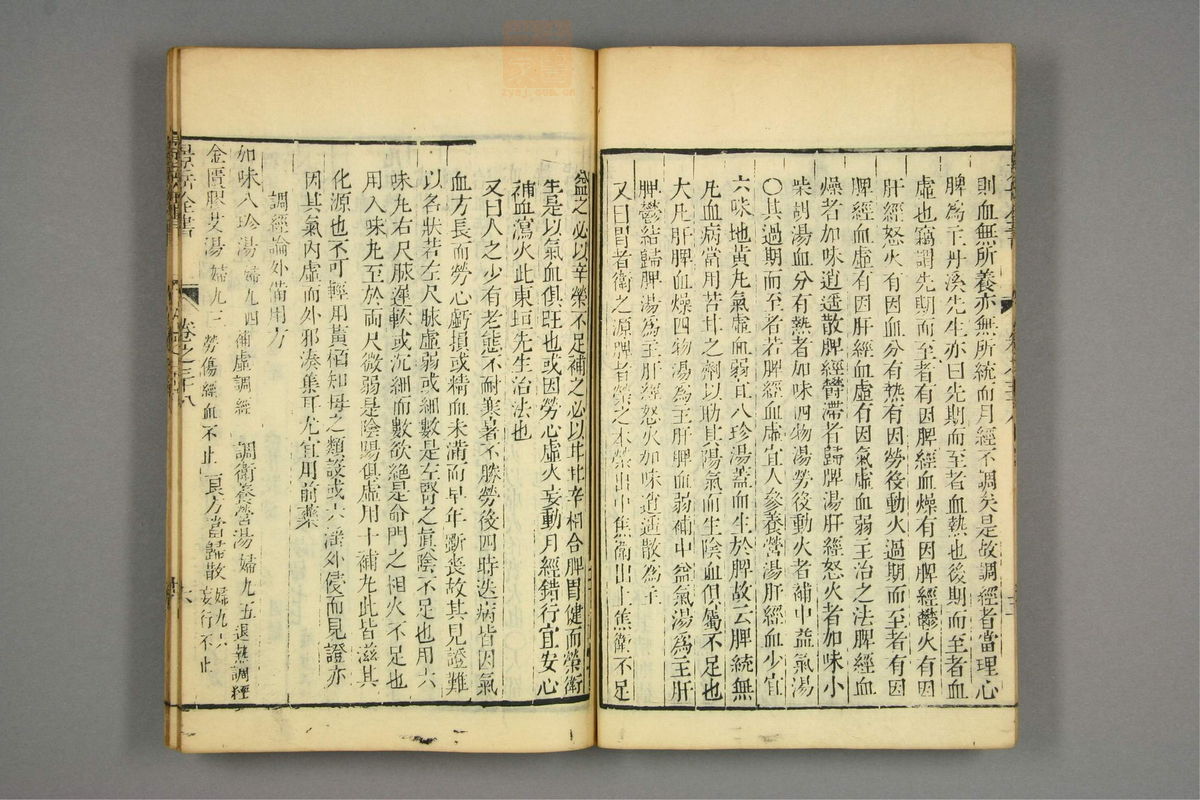 則血無所養亦無所統而月經不調矣是故調經者當理心
脾為主丹溪先生亦曰先期而至者血熱也後期而至者血
虛也竊謂先期而至者有因脾經血燥有因脾經鬱火有因
肝經怒火有因血分有熱有因勞後動火過期而至者有因
脾經血虛有因肝經血虛有因氣虛血弱主治之法脾經血
燥者加味逍遙散脾經鬱滯者歸脾湯肝經怒火者加味小
柴胡湯血分有熱者加味四物湯勞後動火者補中益氣湯
○其過期而至者若脾經血虛宜人參養營湯肝經血少宜
六味地黃丸氣虛血弱宜八珍湯蓋血生於脾故云脾統無
凡血病當用苦甘之劑以助其陽氣而生陰血俱屬不足也
大凡肝脾血燥四物湯為主肝脾血弱補中益氣湯為主肝
脾鬱結歸脾湯為主肝經怒火加味逍遙散為主
又曰胃者衛之源脾者榮之本榮出中焦衛出上焦衛不足
益之必以辛榮不足補之必以甘甘辛相合脾胃健而榮衛
生是以氣血俱旺也或因勞心虛火妄動月經錯行宜安心
補血瀉火此東垣先生治法也
又曰人之少有老態不耐寒暑不勝勞役四時迭病皆因氣
血方長而勞心虧損或精血未滿而早年斲喪故其見證難
以名狀若左尺脉虛弱或細數是左腎之真陰不足也用六
味丸右尺脉遲軟或沉細而數欲絕是命門之相火不足也
用八味丸至於兩尺微弱是陰陽俱虛用十補丸此皆滋其
化源也不可輕用黃栢知母之類設或六淫外侵而見證亦
因其氣內虛而外邪湊襲耳尤宜用前藥
調經論外備用方
加味八珍湯 婦九四 補虛調經 調衛養營湯 婦九五 退熱調經
金匱膠艾湯 婦九三 勞傷經血不止 良方當歸散 婦九六 妄行不止
景岳全書 卷之三十八 六
zysj.com.cn